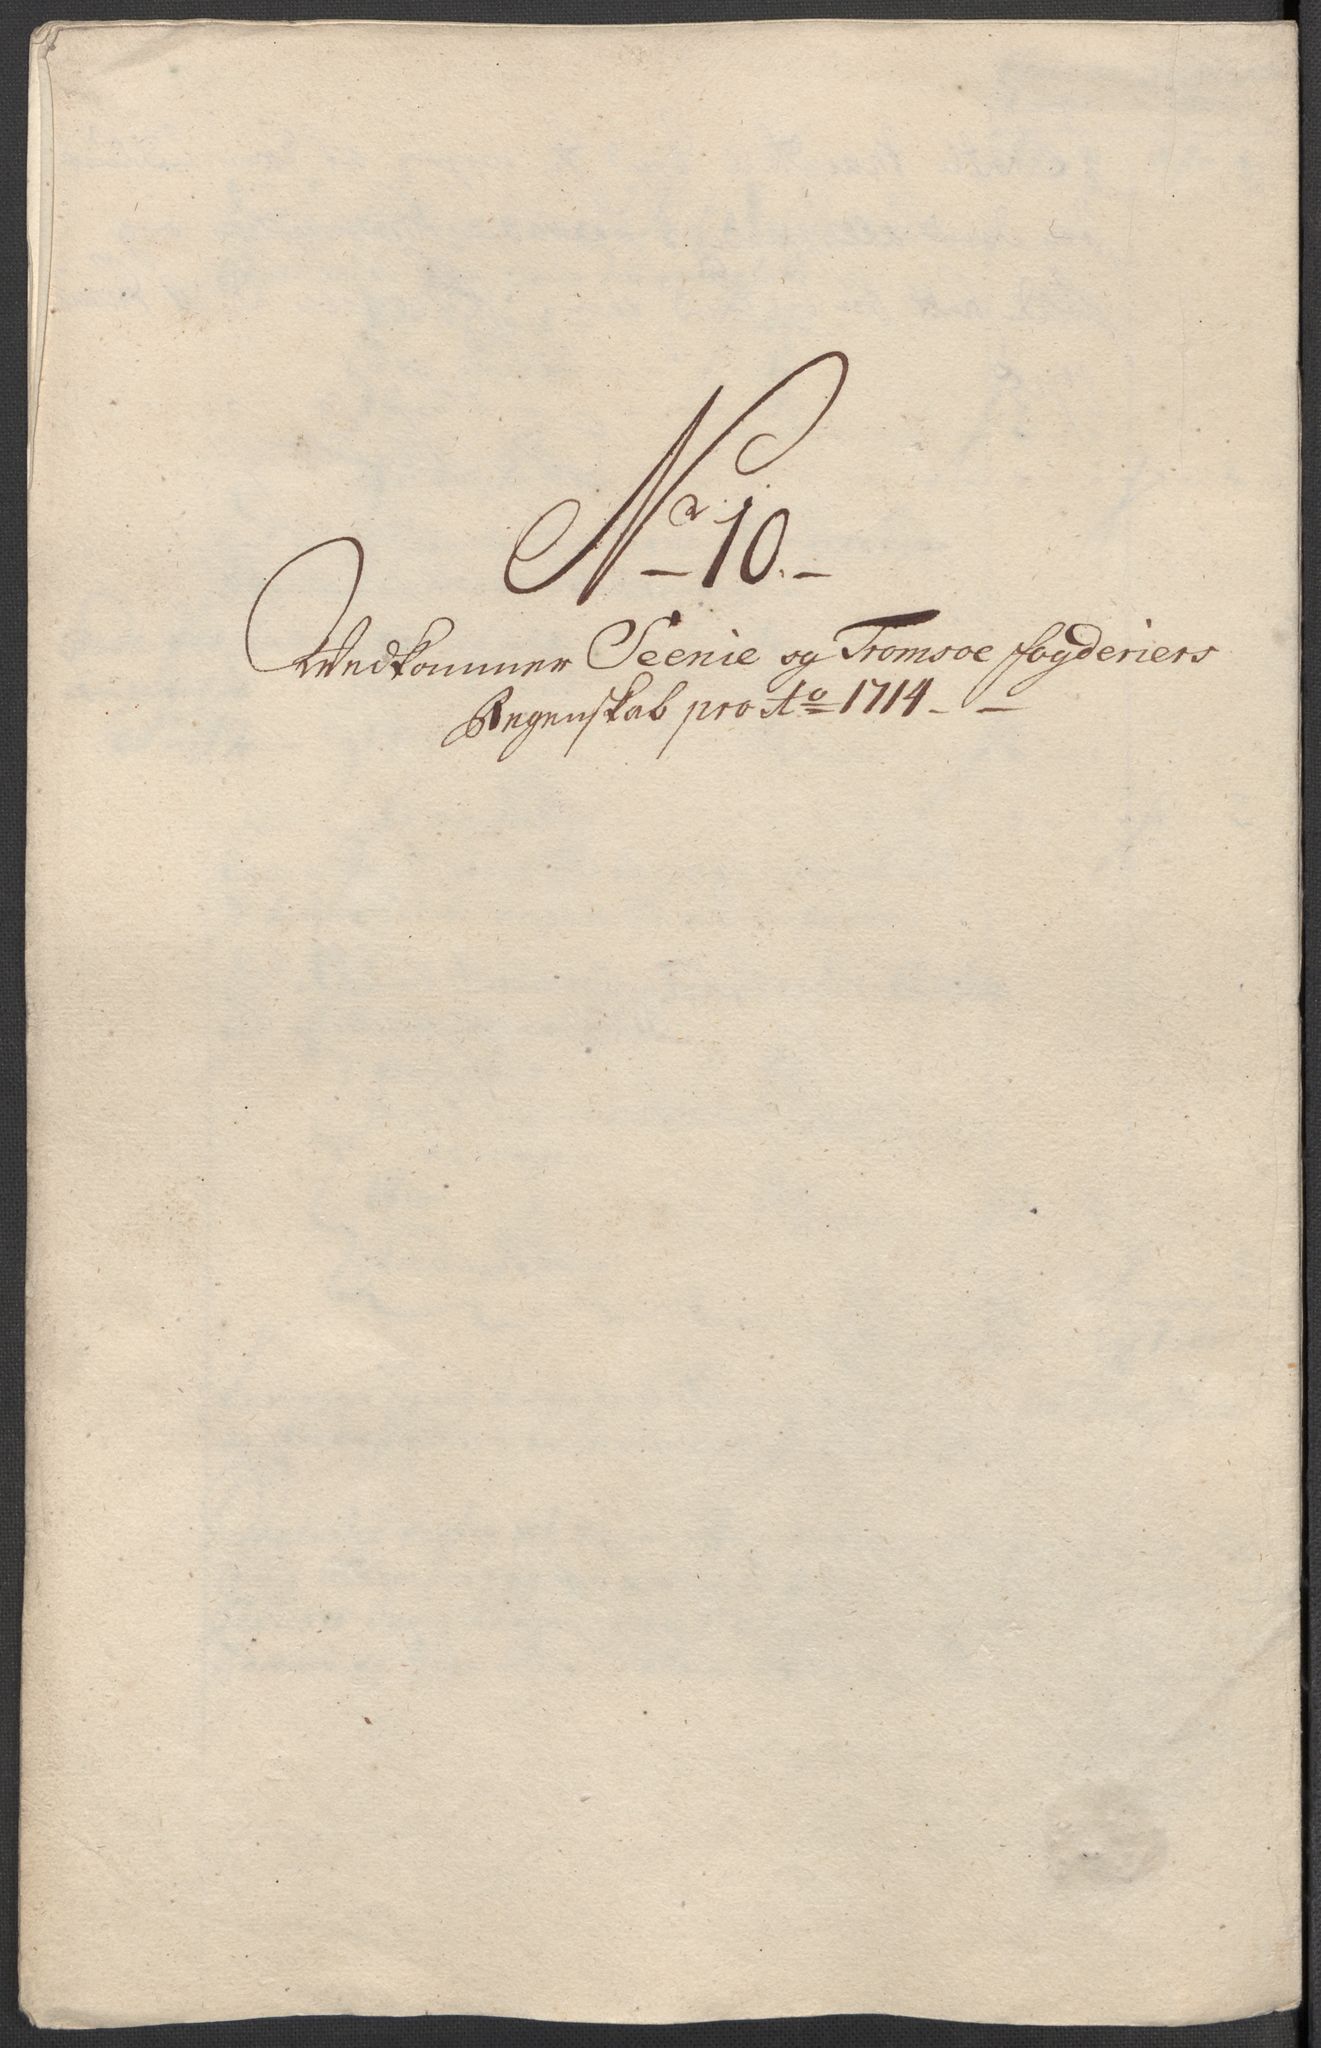 Nr 10.
Vedkommer Seenie og Tromsoe fogderiers
Regenskab pro Ao 1714